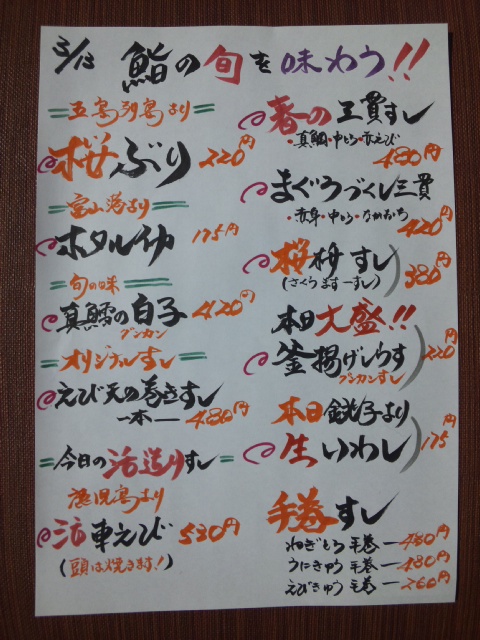 3/13 鮨の旬を味わう!!
=五島列島より=
桜ぶり 220円
=富山湾より=
ホタルイカ 175円
=旬の味=
真鱈の白子 420円
グンカン
=オリジナルすし=
えび天の巻きすし
一本― 480円
=今日の活造りすし=
鹿児島より
活車えび 530円
(頭は焼きます!)
春の三貫すし
・真鯛・中とろ・赤えび
480円
まぐろづくし三貫
・赤身・中とろ・なかおち
420円
(さくらます一すし) 380円
本日大盛!!
釜揚げしらす 220円
グンカンすし
本日銚子より
生いわし 175円
手巻すし
ねぎとろ手巻―480円
うにきゅう手巻―480円
えびきゅう手巻―260円